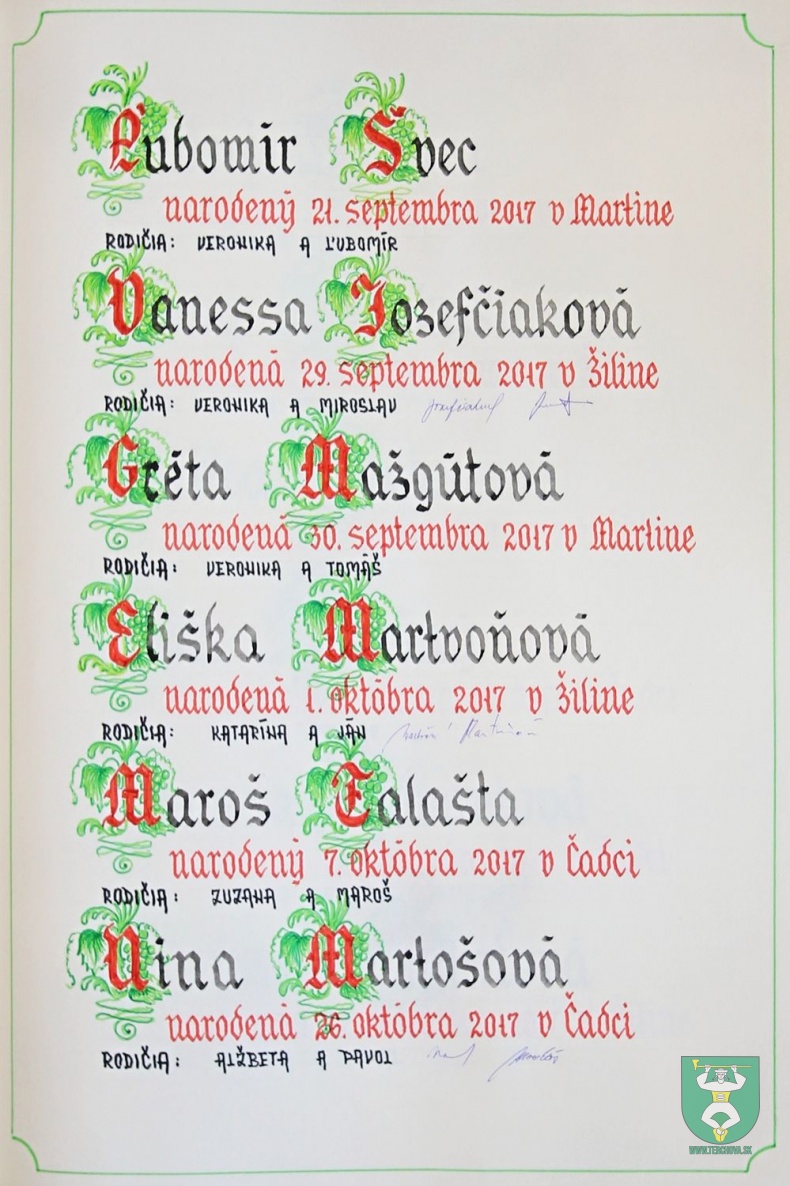 Ľubomír Švec
narodený 21. septembra 2017 v Martine
RODIČIA: VERONIKA A ĽUBOMÍR
Vanessa Jozefčiaková
narodená 29. septembra 2017 v Žiline
RODIČIA: VERONIKA A MIROSLAV
Gréta Mažgútová
narodená 30. septembra 2017 v Martine
RODIČIA: VERONIKA A TOMÁŠ
Eliška Martvoňová
narodená 1. októbra 2017 v Žiline
RODIČIA: KATARÍNA A JÁN
Maroš Talašta
narodený 7. októbra 2017 v Čadci
RODIČIA: ZUZANA A MAROŠ
Nina Martošová
narodená 26. októbra 2017 v Čadci
RODIČIA: ALŽBETA A PAVOL
WWW.TERCHOVA.SK